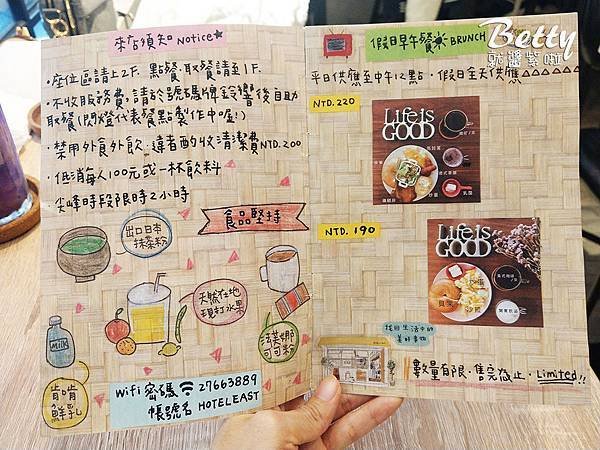 Betty
就醬紫啦
來店須知 Notice★
・座位區請上2F. 點餐、取餐請至1F.
・不收服務費,請於號碼牌鈴響後自助
取餐(閃燈代表餐點製作中喔!)
・禁用外食外飲. 違者酌收清潔費NTD.200
・低消每人100元或一杯飲料
・尖峰時段限時2小時
食品堅持
出口日本
抹茶粉
天然在地
現打水果
法芙娜
可可粉
MILK
肯啃
鮮乳
Wifi 密碼 27663889
帳號名 HOTELEAST
假日早午餐 BRUNCH
平日供應至中午12點, 假日全天供應
NTD.220
Life is
GOOD
NTD. 190
Life is
GOOD
炒蛋
找回生活中的
美好事物
數量有限. 售完為止. Limited!!